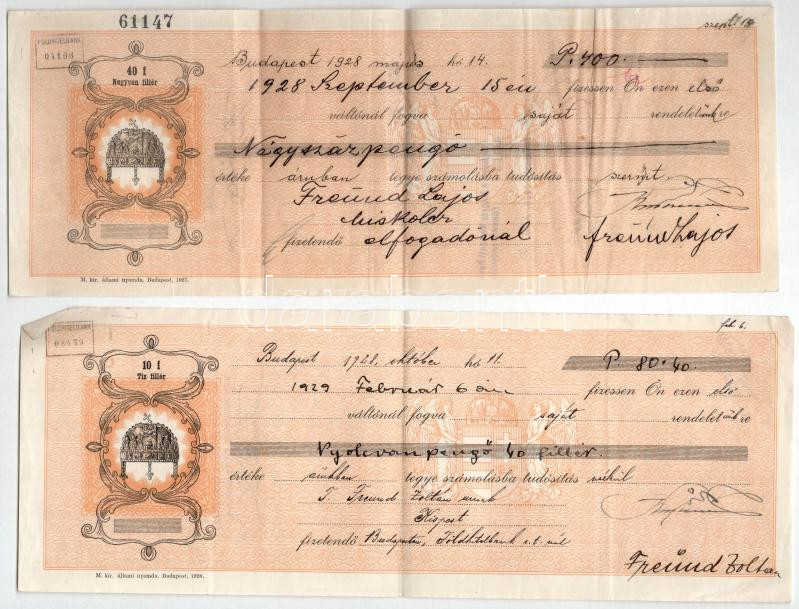 61147
FÖLDHITELBANK
04166
szept 15
40 f
Negyven fillér
Budapest 1928 május hó 14.
P. 400.
1928 Szeptember 15 én fizessen Ön ezen első
váltónál fogva saját rendeletünkre
Négyszáz pengő
értéke áruban tegye számolásba tudósítás szerint
Freund Lajos
Miskolcz
fizetendő elfogadónál
Freund Lajos
M. kir. állami nyomda. Budapest, 1927.
darabanth
FÖLDHITELBANK
08439
feb. 6.
10 f
Tiz fillér
Budapest 1928. október hó 11.
P. 80.40.
1929 Február 6 án fizessen Ön ezen első
váltónál fogva saját rendeletünkre
Nyolcvan pengő 40 fillér
értéke áruban tegye számolásba tudósítás nélkül
T. Freund Zoltán
Kispest
fizetendő Budapesten, Földhitelbank r.t. nál
Freund Zoltán
M. kir. állami nyomda. Budapest, 1928.